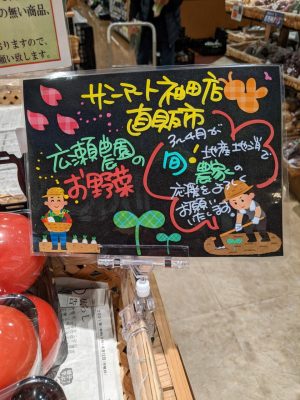 の無い商品、
りますので、
願い致します。
サンマート神田店
直販市
広瀬農園の
お野菜
3〜4月が
旬!
地産地消で
農家の
応援をよろしく
お願い
いたします